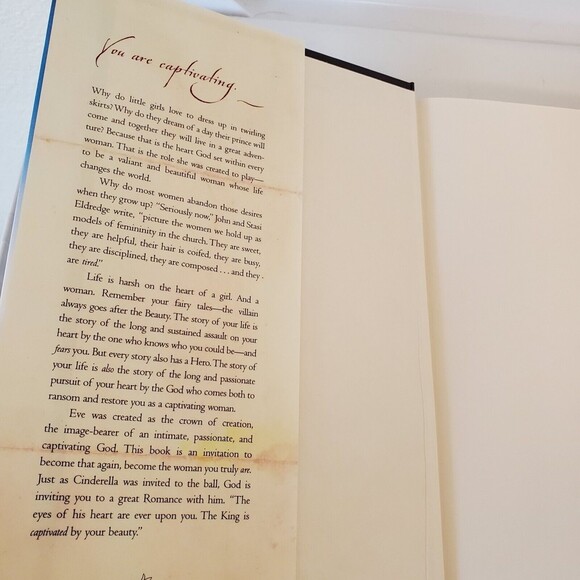 You are captivating.
Why do little girls love to dress up in twirling
skirts? Why do they dream of a day their prince will
come and together they will live in a great adven-
ture? Because that is the heart God set within every
woman. That is the role she was created to play—
to be a valiant and beautiful woman whose life
changes the world.
Why do most women abandon those desires
when they grow up? "Seriously now," John and Stasi
Eldredge write, "picture the women we hold up as
models of femininity in the church. They are sweet,
they are helpful, their hair is coifed, they are busy,
they are disciplined, they are composed . . . and they
are tired."
Life is harsh on the heart of a girl. And a
woman. Remember your fairy tales—the villain
always goes after the Beauty. The story of your life is
the story of the long and sustained assault on your
heart by the one who knows who you could be—and
fears you. But every story also has a Hero. The story of
your life is also the story of the long and passionate
pursuit of your heart by the God who comes both to
ransom and restore you as a captivating woman.
Eve was created as the crown of creation,
the image-bearer of an intimate, passionate, and
captivating God. This book is an invitation to
become that again, become the woman you truly are.
Just as Cinderella was invited to the ball, God is
inviting you to a great Romance with him. "The
eyes of his heart are ever upon you. The King is
captivated by your beauty."